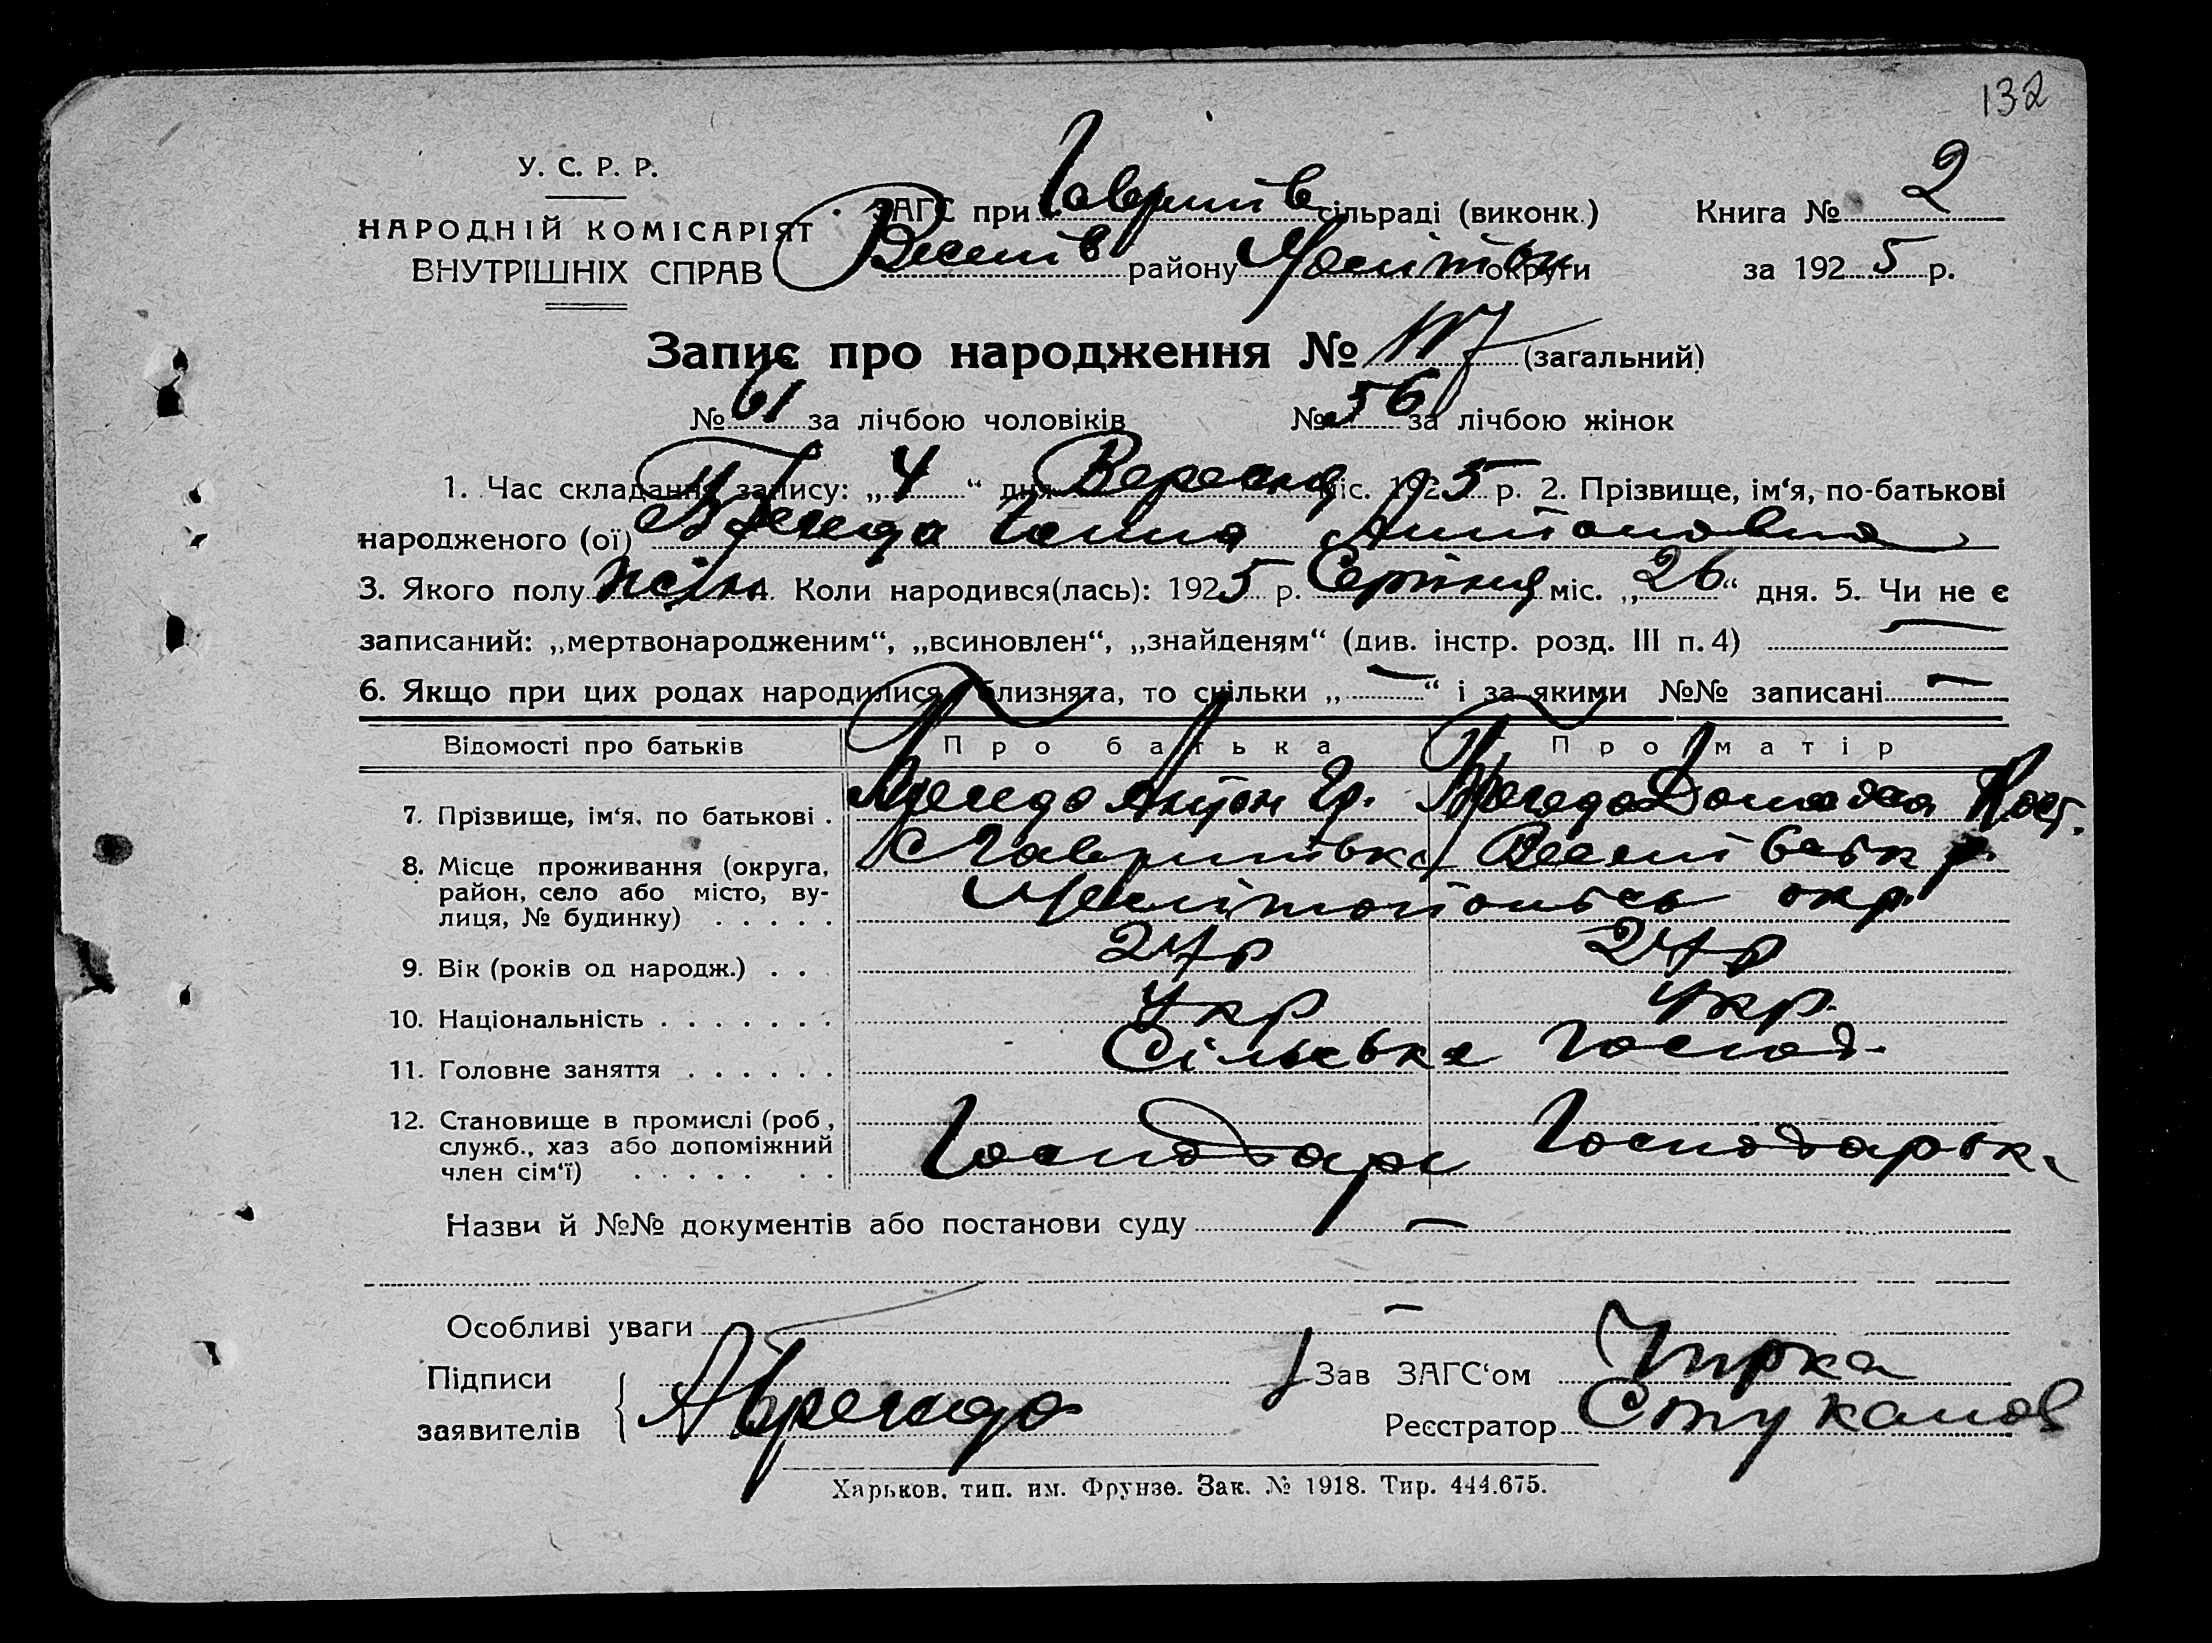 132
У. С. Р. Р.
НАРОДНІЙ КОМІСАРІЯТ
ВНУТРІШНІХ СПРАВ
ЗАГС при Гаврилів сільраді (виконк.) Книга № 2
Веселів району Меліто округи за 1925 р.
Запис про народження № 117 (загальний)
№ 61 за лічбою чоловіків № 56 за лічбою жінок
1. Час складання запису: „4“ дня Вересня міс. 1925 р. 2. Прізвище, ім‘я, по-батькові
народженого (ої) Ганна Антоновна
3. Якого полу жін 4. Коли народився(лась): 1925 р. Серпня міс. „26“ дня. 5. Чи не є
записаний: „мертвонародженим“, „всиновлен“, „знайденям“ (див. інстр. розд. III п. 4) —
6. Якщо при цих родах народилися близнята, то скільки „—“ і за якими №№ записані —
Відомості про батьків Про батька Про матір
7. Прізвище, ім‘я, по батькові . Антон Гр. Домаха Кост.
8. Місце проживання (округа, район, село або місто, вулиця, № будинку) . . . . .
9. Вік (років од народж.) . . 24 р 24 р
10. Національність . . . . . . . Укр Укр.
11. Головне заняття . . . . . . Сільське Господ.
12. Становище в промислі (роб, служб., хаз або допоміжний член сім‘ї) . . . . . . . Господарь Господарька
Назви й №№ документів або постанови суду —
Особливі уваги —
Підписи
заявителів
Зав ЗАГС‘ом Чирка
Реєстратор Стуканов
Харьков, тип. им. Фрунзе. Зак. № 1918. Тир. 444.675.